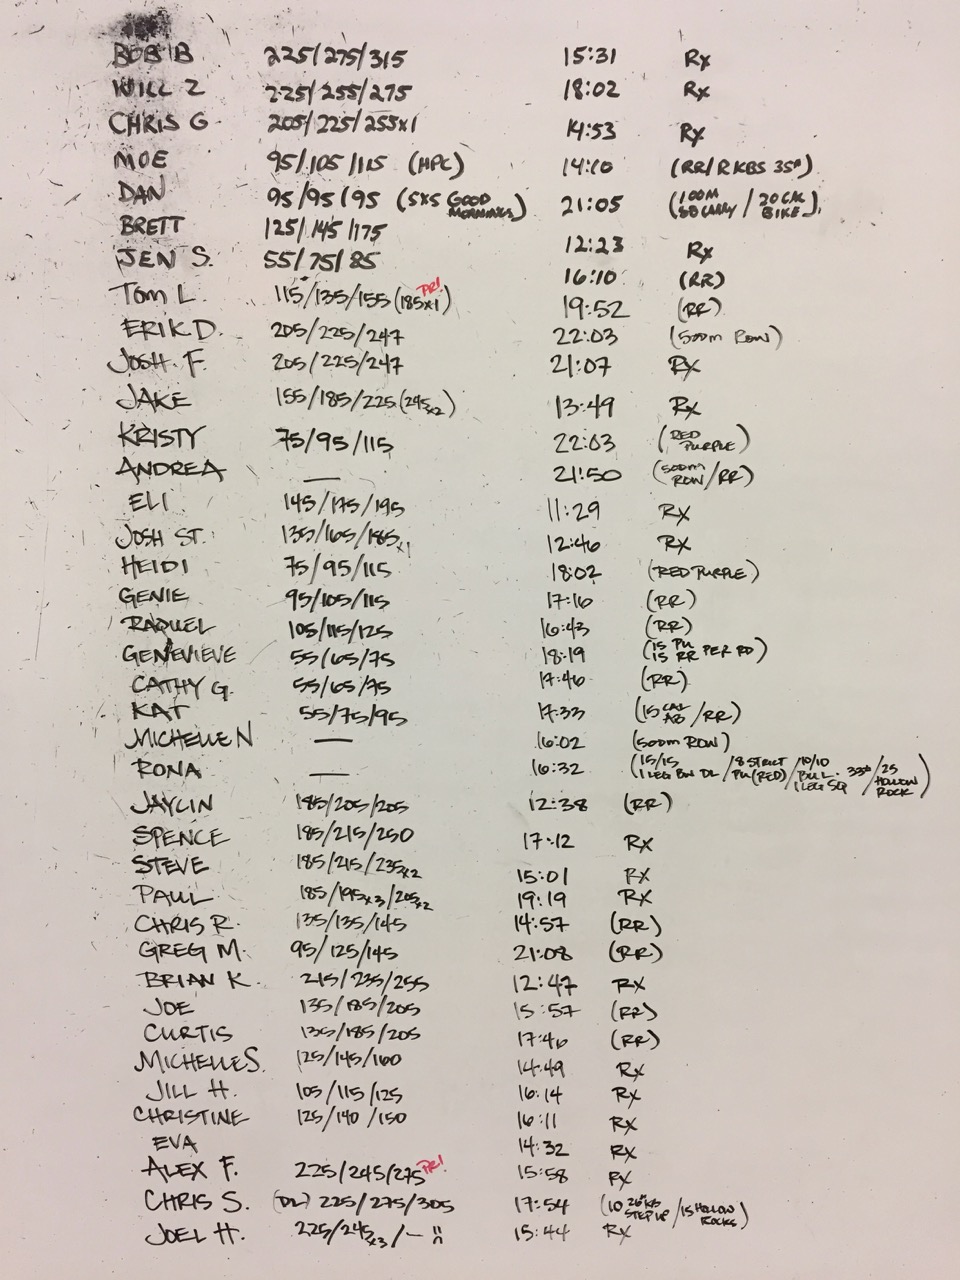 BOB B 225/275/315 15:31 Rx
WILL Z 225/255/275 18:02 Rx
CHRIS G 205/225/255x1 14:53 Rx
MOE 95/105/115 (HPC) 14:10 (RR/RKBS 35#)
DAN 95/95/95 (5x5 GOOD MORNINGS) 21:05 (100M SB CARRY / 20 CAL BIKE)
BRETT 125/145/175 12:23 Rx
JEN S. 55/75/85 16:10 (RR)
TOM L. 115/135/155 (185x1) PR! 19:52 (RR)
ERIK D. 205/225/247 22:03 (500m ROW)
JOSH F. 205/225/247 21:07 RX
JAKE 155/185/225 (245x2) 13:49 Rx
KRISTY 75/95/115 22:03 (RED PURPLE)
ANDREA — 21:50 (500m ROW/RR)
ELI 145/175/195 11:29 RX
JOSH ST. 135/165/185x1 12:46 RX
HEIDI 75/95/115 18:02 (RED PURPLE)
GENIE 95/105/115 17:16 (RR)
RAQUEL 105/115/125 16:43 (RR)
GENEVIEVE 55/65/75 18:19 (15 PU 15 RR PER RD)
CATHY G. 55/65/75 17:46 (RR)
KAT 55/75/95 17:33 (15 CAL AB/RR)
MICHELLE N — 16:02 (500m ROW)
RONA — 16:32 (15/15 1 LEG DL / 8 STRICT PU (RED) / 10/10 1 LEG SQ 33# / 25 HOLLOW ROCK)
JAYLIN 185/205/205 12:38 (RR)
SPENCE 185/215/250 17:12 RX
STEVE 185/215/235x2 15:01 RX
PAUL 185/195x3/205x2 19:19 RX
CHRIS R. 135/135/145 14:57 (RR)
GREG M. 95/125/145 21:08 (RR)
BRIAN K. 215/235/255 12:47 RX
JOE 135/185/205 15:57 (RR)
CURTIS 135/185/205 17:46 (RR)
MICHELLE S. 125/145/160 14:49 RX
JILL H. 105/115/125 16:14 RX
CHRISTINE 125/140/150 16:11 RX
EVA 14:32 RX
ALEX F. 225/245/275 PR! 15:58 RX
CHRIS S. (DL) 225/275/305 17:54 (10 STEP UP / 15 HOLLOW ROCKS)
JOEL H. 225/245x3/— 15:44 RX